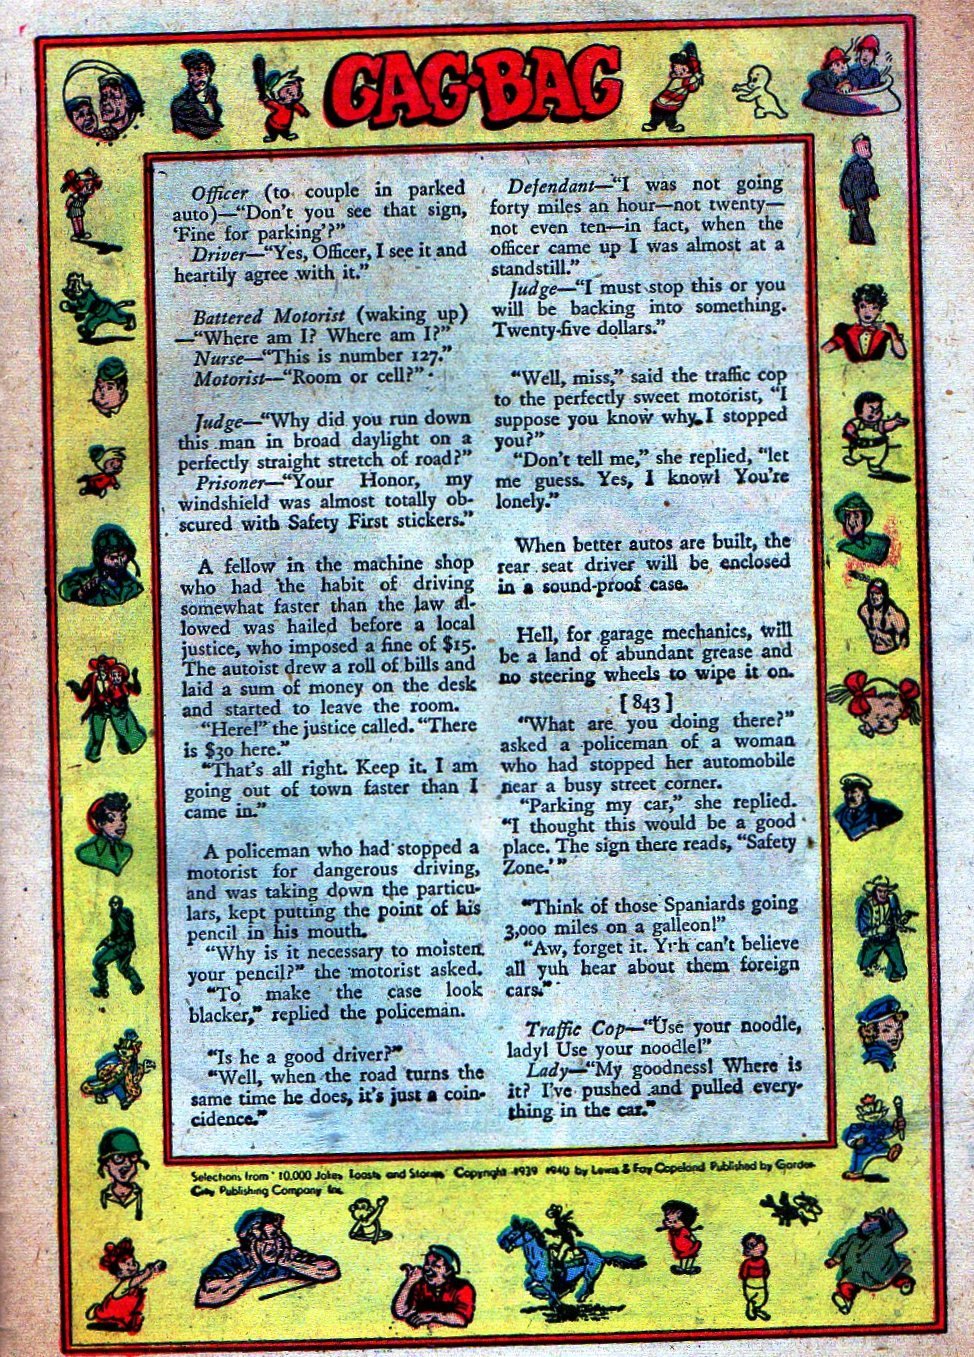 GAG-BAG
Officer (to couple in parked
auto)—"Don't you see that sign,
'Fine for parking'?"
Driver—"Yes, Officer, I see it and
heartily agree with it."
Battered Motorist (waking up)
—"Where am I? Where am I?"
Nurse—"This is number 127."
Motorist—"Room or cell?"
Judge—"Why did you run down
this man in broad daylight on a
perfectly straight stretch of road?"
Prisoner—"Your Honor, my
windshield was almost totally ob-
scured with Safety First stickers."
A fellow in the machine shop
who had the habit of driving
somewhat faster than the law al-
lowed was hailed before a local
justice, who imposed a fine of $15.
The autoist drew a roll of bills and
laid a sum of money on the desk
and started to leave the room.
"Here!" the justice called. "There
is $30 here."
"That's all right. Keep it. I am
going out of town faster than I
came in."
A policeman who had stopped a
motorist for dangerous driving,
and was taking down the particu-
lars, kept putting the point of his
pencil in his mouth.
"Why is it necessary to moisten
your pencil?" the motorist asked.
"To make the case look
blacker," replied the policeman.
"Is he a good driver?"
"Well, when the road turns the
same time he does, it's just a coin-
cidence."
Defendant—"I was not going
forty miles an hour—not twenty—
not even ten—in fact, when the
officer came up I was almost at a
standstill."
Judge—"I must stop this or you
will be backing into something.
Twenty-five dollars."
"Well, miss," said the traffic cop
to the perfectly sweet motorist, "I
suppose you know why I stopped
you?"
"Don't tell me," she replied, "let
me guess. Yes, I know! You're
lonely."
When better autos are built, the
rear seat driver will be enclosed
in a sound-proof case.
Hell, for garage mechanics, will
be a land of abundant grease and
no steering wheels to wipe it on.
[843]
"What are you doing there?"
asked a policeman of a woman
who had stopped her automobile
near a busy street corner.
"Parking my car," she replied.
"I thought this would be a good
place. The sign there reads, "Safety
Zone.'"
"Think of those Spaniards going
3,000 miles on a galleon!"
"Aw, forget it. Yuh can't believe
all yuh hear about them foreign
cars."
Traffic Cop—"Use your noodle,
lady! Use your noodle!"
Lady—"My goodness! Where is
it? I've pushed and pulled every-
thing in the car."
Selections from "10,000 Jokes Toasts and Stories" Copyright 1939 1940 by Lewis & Fay Copeland Published by Garden
City Publishing Company Inc